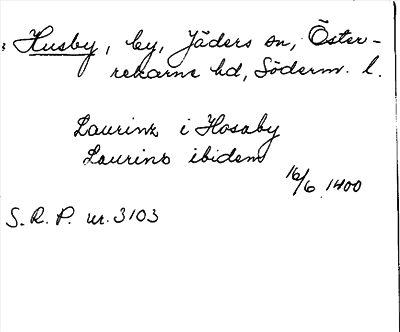 Husby, by, Jäders sn, Öster-
rekarne hd, Söderm. l.
Laurinz i Hosaby
Laurins ibidem
16/6 1400
S. R. P. nr. 3103